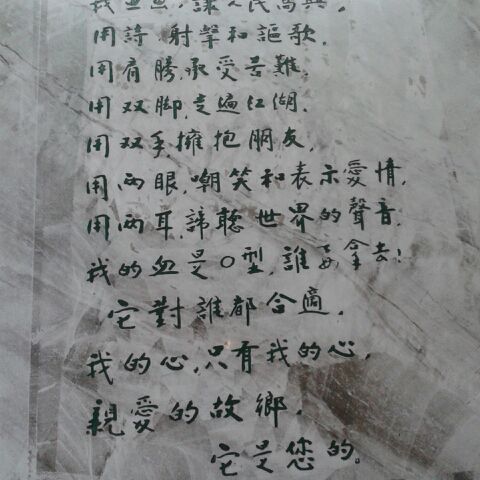 用詩,射擊和謳歌.
用肩膀,承受苦難.
用双脚,走遍江湖.
用双手擁抱朋友.
用两眼,嘲笑和表示愛情.
用两耳,諦聽世界的聲音.
我的血是O型,誰要拿去!
它對誰都合適.
我的心,只有我的心,
親愛的故鄉,
它是您的。